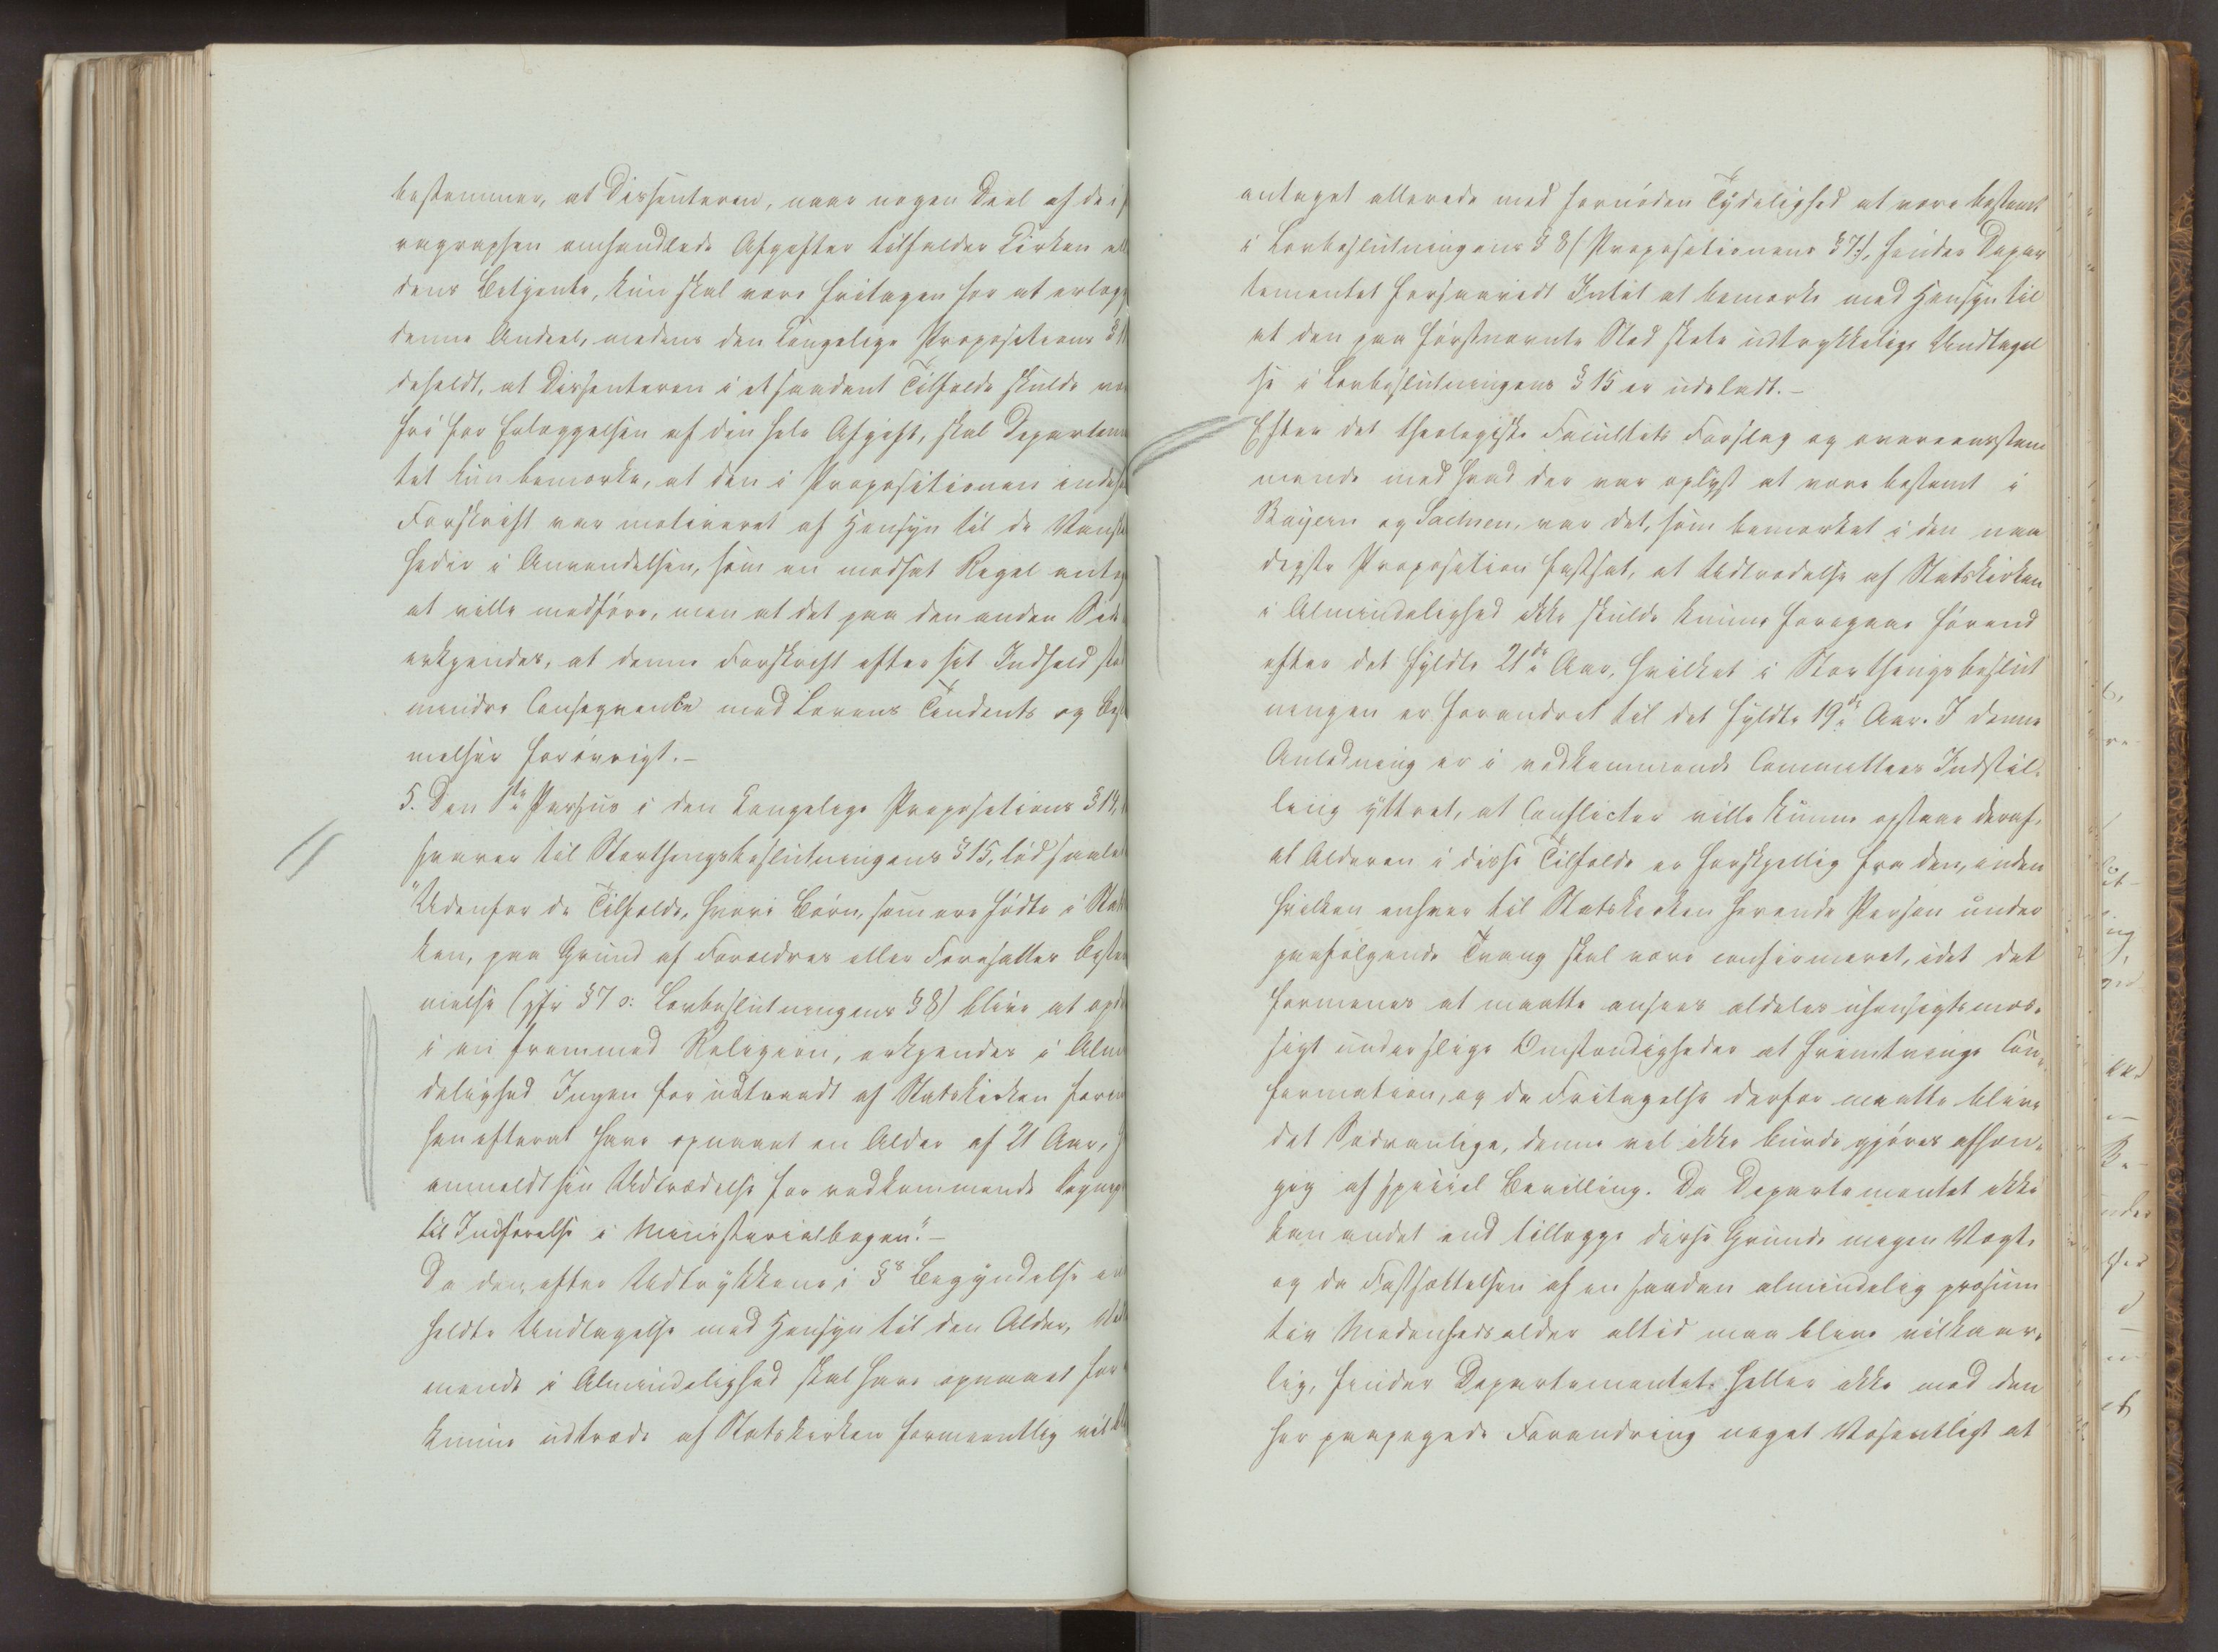 bestemmer, at Dissenteren, naar nogen Deel af de i
ragraphen omhandlede Afgifter tilfalder Kirken ell
dens Betjente, kun skal være fritagen for at erlægg
denne Andeel, medens den Kongelige Propositions §
deholdt, at Dissenteren i et saadant Tilfælde skulde væ
fri for Erlæggelsen af den hele Afgift, skal Departem
tet kun bemærke, at den i Propositionen indeh
Forskrift var motiveret af Hensyn til de Vansk
heder i Anvendelsen, som en modsat Regel antog
at ville medføre, men at det paa den anden Side
erkjendes, at denne Forskrift efter sit Indhold sta
mindre Conseqvente med Lovens Tendents og Best
melser forøvrigt. -
5. Den 1ste Passus i den Kongelige Propositions § 14,
svarer til Storthingsbeslutningens § 15, lød saale
"Udenfor de Tilfælde, hvori Børn, som ere fødte i Stats
ken, paa Grund af Forældres eller Foresattes Bestem
melse (jfr § 7 o: Lovbeslutningens § 8) blive at opd
i en fremmed Religion, erkjendes i Almi
delighed Ingen for udtraadt af Statskirken foren
han efterat have opnaaet en Alder af 21 Aar,
anmeldt sin Udtrædelse for vedkommende Sogne
til Indførelse i Ministerialbogen." -
Da den, efter Udtrykkene i §s Begyndelse
holdte Undtagelse med Hensyn til den Alder,
mende i Almindelighed skal have opnaaet for
kunne udtræde af Statskirken formeentlig vil
antaget allerede med fornøden Tydelighed at være bestemt
i Lovbeslutningens § 8 (Propositionens § 7), finder Depar
tementet forsaavidt Intet at bemærke med Hensyn til
at den paa førstnævnte Sted skete udtrykkelige Undtagel
se i Lovbeslutningens § 15 er udeladt. -
Efter det theologiske Facultets Forslag og overeensstem
mende med hvad der var oplyst at være bestemt i
Bayern og Sachsen, var det, som bemærket i den naa
digste Proposition fastsat, at Udtrædelse af Statskirken
i Almindelighed ikke skulde kunne foregaae førend
efter det fyldte 21de Aar, hvilket i Storthingsbeslut
ningen er forandret til det fyldte 19de Aar. I denne
Anledning er i vedkommende Committees Indstil-
ling yttret, at Conflicter ville kunne opstaae deraf,
at Alderen i disse Tilfælde er forskjellig fra den, inden
hvilken enhver til Statskirken hørende Person under
paafølgende Tvang skal være confirmeret, idet det
formenes at maatte ansees aldeles uhensigtsmæs-
sigt under slige Omstændigheder at fremtvinge Con-
firmation, og da Fritagelse derfor maatte blive
det Sædvanlige, denne vel ikke burde gjøres afhæn-
gig af speciel Bevilling. Da Departementet ikke
kan andet end tillægge disse Grunde megen Vægt,
og da Fastsættelsen af en saadan almindelig præsum
tiv Modenhedsalder altid maa blive vilkaar-
lig, finder Departementet heller ikke med den
her paapegede Forandring noget Væsentligt at